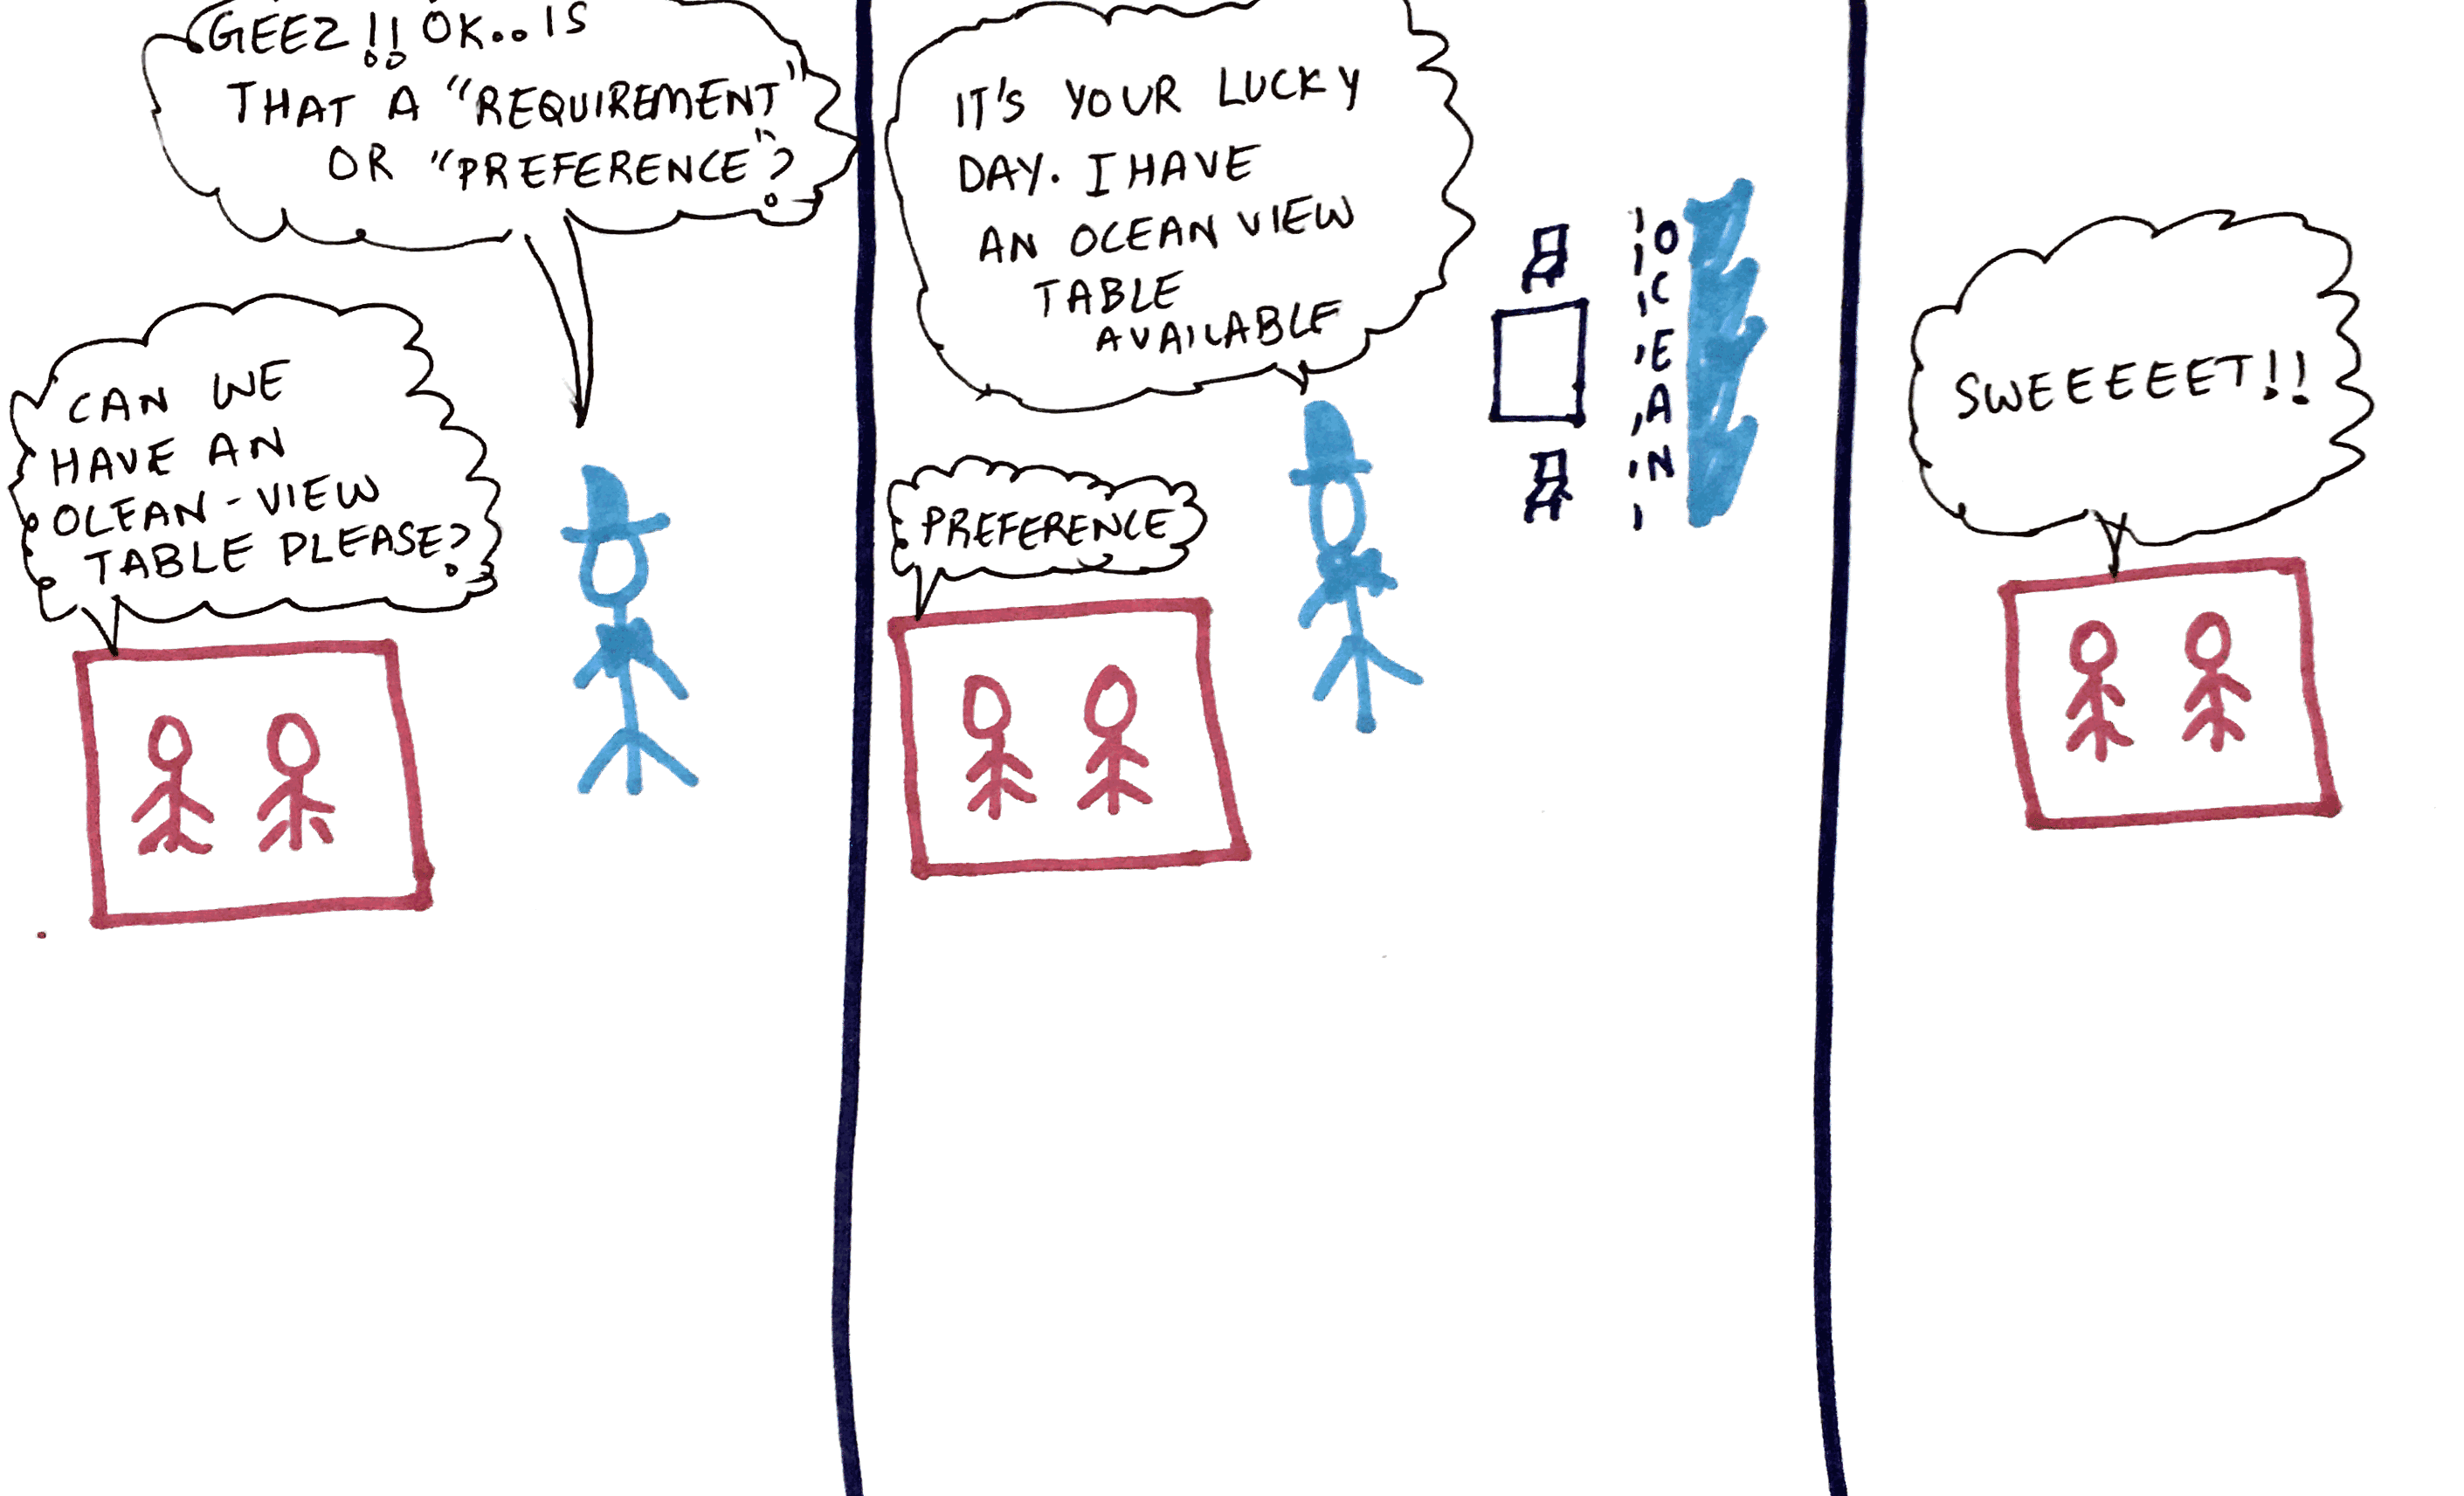 CAN WE
HAVE AN
OCEAN-VIEW
TABLE PLEASE?
GEEZ!! OK.. IS
THAT A "REQUIREMENT"
OR "PREFERENCE"?
PREFERENCE
IT'S YOUR LUCKY
DAY. I HAVE
AN OCEAN VIEW
TABLE
AVAILABLE
OCEAN
SWEEEEET!!